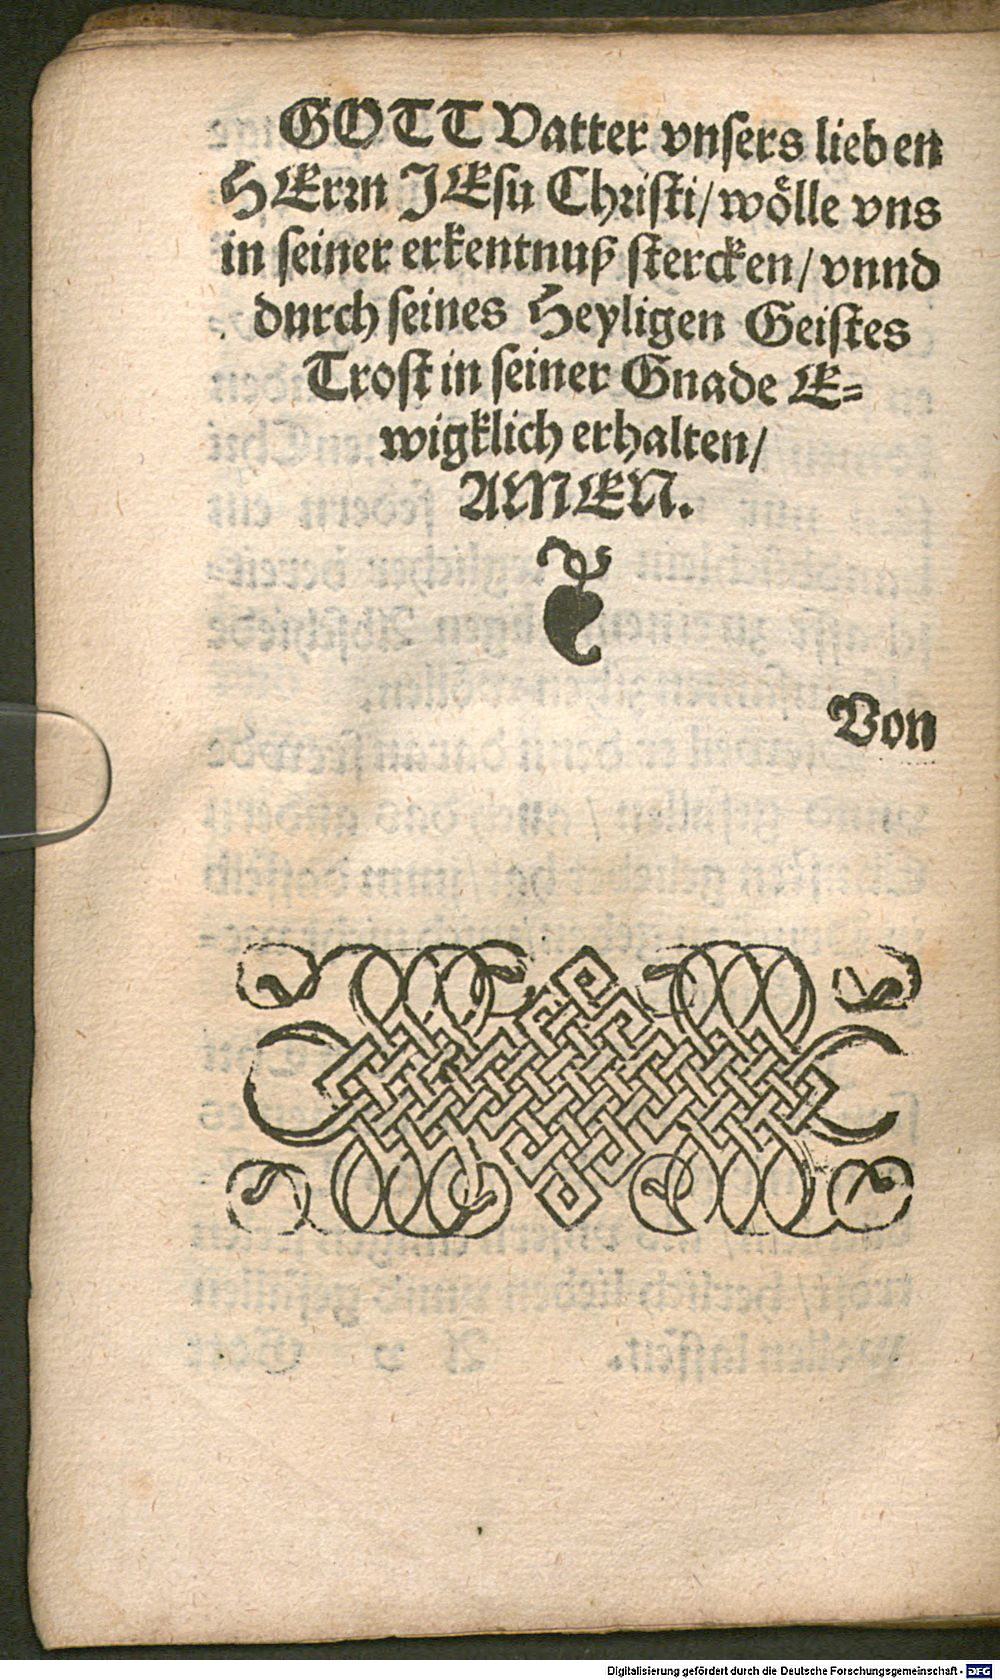 GOTT Vatter vnsers lieben
HErrn JEsu Christi/ woͤlle vns
in seiner erkentnuß stercken/ vnnd
durch seines Heyligen Geistes
Trost in seiner Gnade E=
wigklich erhalten/
AMEN.
Von
Digitalisierung gefördert durch die Deutsche Forschungsgemeinschaft - DFG